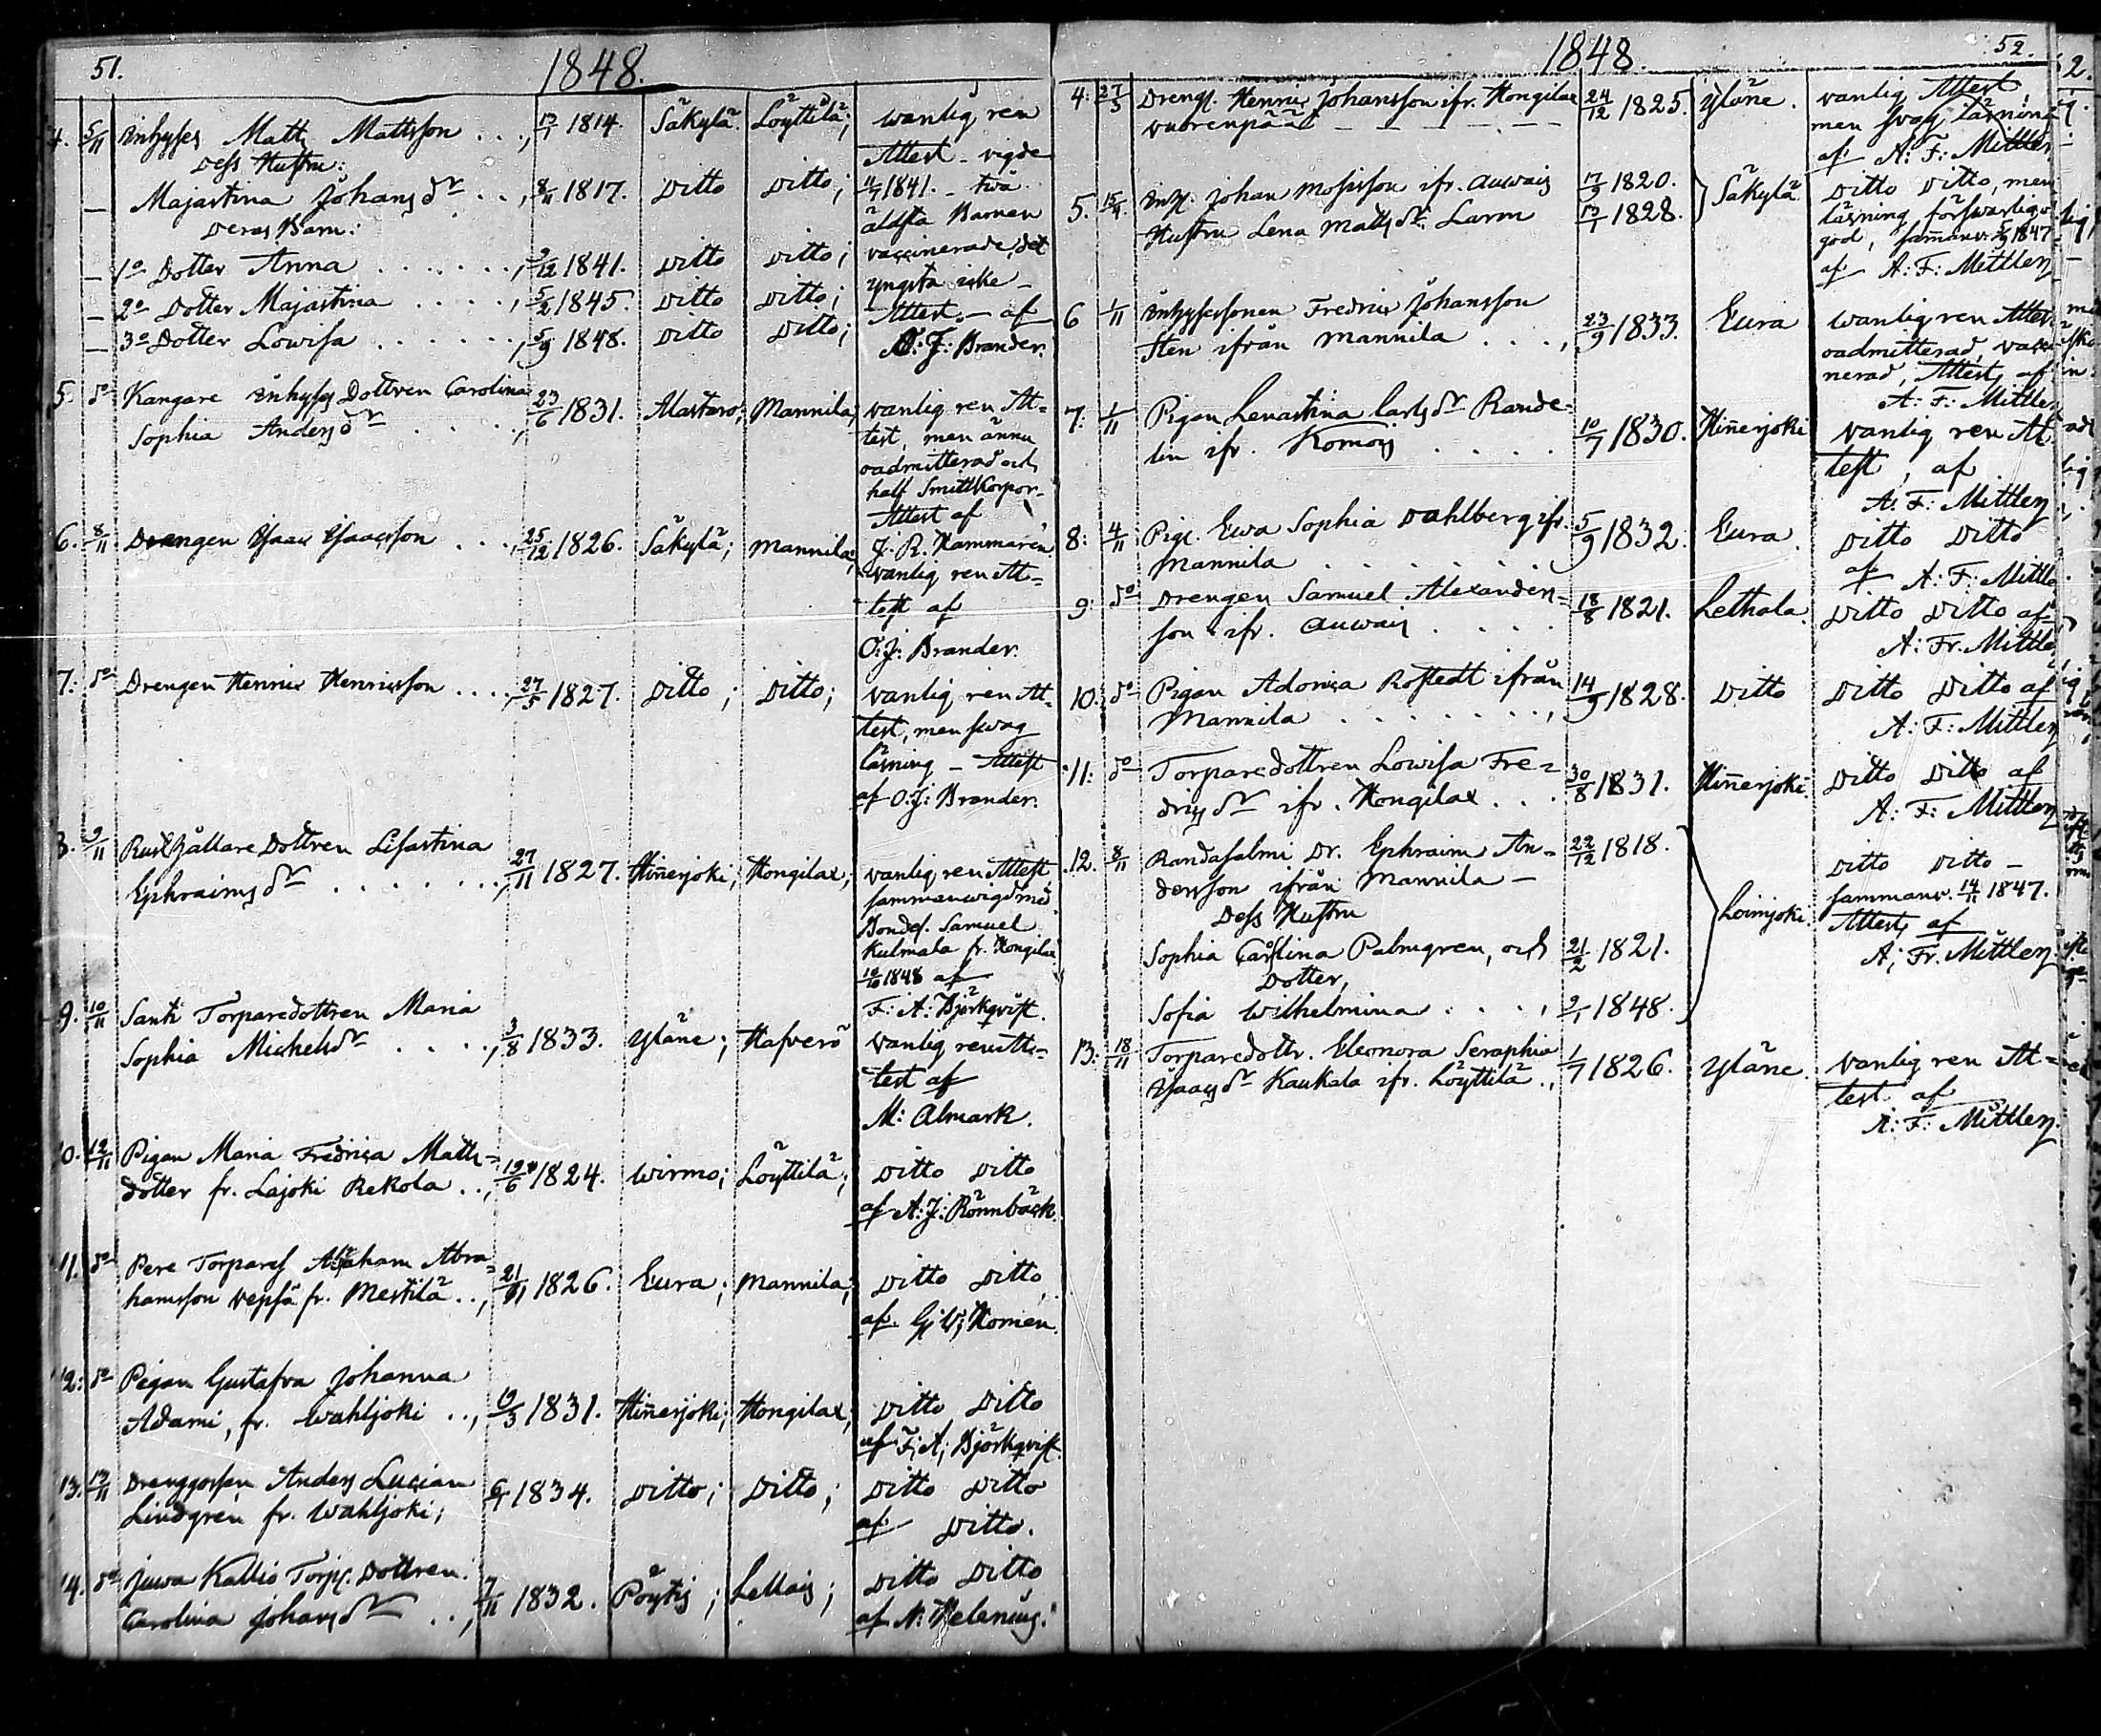 51. 1848.
4. 5/11 Inhyses Matts Mattsson . . , 17/1 1814. Säkylä. Löyttilä; wanlig ren
Dess Hustru: Attest - vigde
— Majastina Johansdr . . , 8/11 1817. Ditto Ditto; 1841. - två
Deras Barn: äldsta Barnen
— 1o Dotter Anna . . . . . . . , 9/12 1841. Ditto Ditto; vaccinerade, det
— 2o Dotter Majastina . . . . , 5/2 1845. Ditto Ditto; yngsta icke -
— 3o Dotter Lowisa . . . . . . , 5/9 1848. Ditto Ditto; Attest. - af
O: J: Brander.
5. do Kangare Inhyses Dottren Carolina
Sophia Andersdr . . . . . , 23/6 1831. Alastaro; Mannila; vanlig ren At=
test, men ännu
oadmitterad och
half Smittkorpor-
Attest af
J. R. Hammarén
6. 8/11 Drengen Isaac Isaacsson . . . , 25/12 1826. Säkylä; Mannila; vanlig ren At=
test af
O: J: Brander.
7: do Drengen Henric Henricsson . . . , 27/5 1827. Ditto; Ditto; vanlig ren At=
test, men swag
läsning - Attest
af O: J: Brander.
8. 9/11 Rusthållare Dottren Lisastina
Ephraimsdr . . . . . . . , 27/11 1827. Hinnerjoki; Hongilax; vanlig ren Attest
sammanwigd med
Bondes. Samuel
Kulmala fr. Hongilax
10/10 1848 af
F: A: Björkqvist.
9. 10/11 Santi Torparedottren Maria
Sophia Michelsdr . . . . , 3/8 1833. Yläne; Hafverö vanlig ren At=
test af
M: Almark.
10. 12/11 Pigan Maria Fredrica Matts=
dotter fr. Lajoki Rekola . . , 19/6 1824. Wirmo; Löyttilä; Ditto Ditto
af A: J: Rönnbäck.
11. do Pere Torpares Abraham Abra=
hamsson Vepsä fr. Mestilä . . , 21/11 1826. Eura; Mannila; Ditto Ditto
af. Homén.
12: do Pigan Gustafva Johanna
Adami, fr. Wahljoki . . , 19/3 1831. Hinnerjoki; Hongilax; Ditto Ditto
af F: A; Björkqvist.
13. 17/11 Drenggossen Anders Lucian
Lindgrén fr. Wahljoki; 6/1 1834. Ditto; Ditto; Ditto Ditto
af Ditto.
14. do Juwa Kallio Torps. Dottren.
Carolina Johansdr . . , 7/11 1832. Pöytis; Lellais; Ditto Ditto
af N: Helenius.
1848. 52.
4: 27/5 Drengs. Henric Johansson ifr. Hongilax 24/12 1825. Yläne. vanlig Attest
vuorenpää — — — — — men swag Läsning
af A: F: Mittler
5. 15/9 Inhs. Johan Mosisson ifr. Auwais 17/9 1820. Säkylä Ditto Ditto, men
Hustru Lena Mattsdr. Larm 17/1 1828. läsning förswarlig o
god, samanv. 1847
af A: F: Mittler
6 1/11 Inhysessonen Fredric Johansson
Sten ifrån Mannila . . . , 23/9 1833. Eura wanlig ren Attest
oadmitterad, vacci
nerad, Attest af
A: F: Mittler
7. 1/11 Pigan Lenastina Carlsdr Rande=
lin ifr. Komois . . . . 10/7 1830. Hinnerjoki vanlig ren At
test, af
A. F: Mittler
8: 4/11 Pig. Ewa Sophia Dahlberg ifr. 5/9 1832. Eura. Ditto Ditto
Mannila . . . . . . . af A: F: Mittle
9: do Drengen Samuel Alexanders=
son ifr. Auwais . . . . 18/8 1821. Lethala. Ditto Ditto af
A: Fr. Mittle
10. do Pigan Adonia Rostedt ifrån 14/9 1828. Ditto Ditto Ditto af
Mannila . . . . . . . . , A: F: Mittler
11: do Torparedottren Lowisa Fre=
dricsdr ifr. Hongilax . . . 30/8 1831. Hinnerjoki. Ditto Ditto af
A: F: Mittler
12. 8/11 Randasalmi Dr. Ephraim An= 22/12 1818.
dersson ifrån Mannila — Ditto Ditto —
Dess Hustru Loimjoki. sammanv. 14/11 1847.
Sophia Carolina Palmgren, och 21/2 1821. Attest af
Dotter, A; Fr. Mittler.
Sofia Wilhelmina . . . , 9/1 1848.
13: 18/11 Torparedottr. Eleonora Seraphia
Isaacsdr Kaukala ifr. Löyttilä . , 1/7 1826. Yläne. vanlig ren At=
test af
A: F: Mittler.